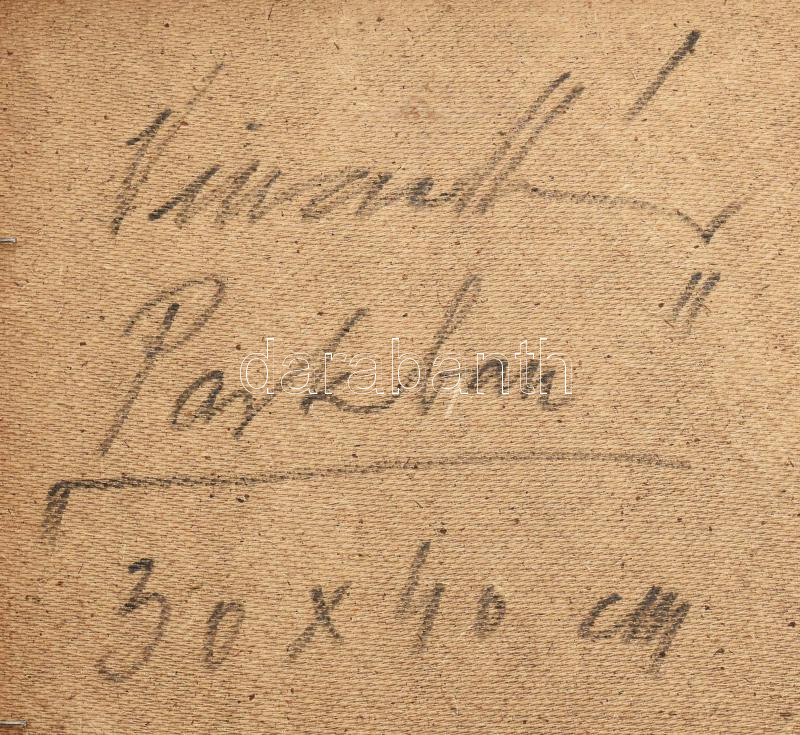 Parkban"
30 x 40 cm
darabanth